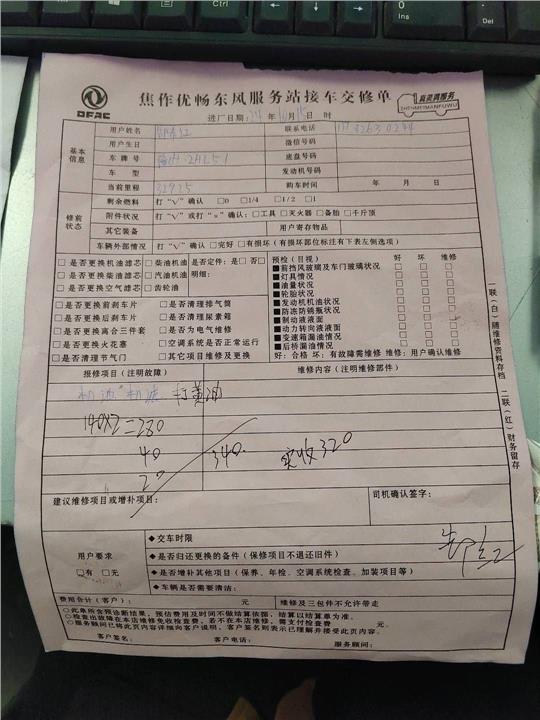 DFAC
焦作优畅东风服务站接车交修单
真美满服务
ZHENMEIMANFUWU
进厂日期: 24 年 月 日 时
基本信息
用户姓名 联系电话
用户生日 微信号码
车牌号 底盘号码
车型 发动机号码
当前里程 32925 购车时间 年 月 日
修前状态
剩余燃料 打“√”确认 □0 □1/4 □1/2 □1
附件状况 打“√”或打“×”确认: □工具 □灭火器 □备胎 □千斤顶
其它装备 用户寄存物品
车辆外部情况 打“√”确认 □完好 □有损坏 (有损坏部位标注右下表左侧选项)
□是否更换机油滤芯 □柴油机油 是否定件: □是 □否
□是否更换柴油滤芯 □汽油机油 明细:
□是否更换空气滤芯 □齿轮油
□是否更换前刹车片 □是否清理排气筒
□是否更换后刹车片 □是否清理尿素箱
□是否更换离合三件套 □是否为电气维修
□是否更换火花塞 □空调系统是否正常运行
□是否清理节气门 □其它项目维修及更换
预检 (目视) 好 坏 维修
■前挡风玻璃及车门玻璃状况 □ □ □
■灯具情况 □ □ □
■油量状况 □ □ □
■轮胎状况 □ □ □
■发动机机油状况 □ □ □
■防冻防锈瓶状况 □ □ □
■制动液液面 □ □ □
■动力转向液液面 □ □ □
■变速箱漏油情况 □ □ □
■后桥漏油情况 □ □ □
好: 合格 坏: 有故障需维修 维修: 用户确认维修
报修项目 (注明故障) 维修内容 (注明维修部件)
机油 机滤 打黄油
140×2=280
40 340. 实收320
20
建议维修项目或增补项目: 司机确认签字:
用户要求
□有 □无
◆交车时限
◆是否归还更换的备件 (保修项目不退还旧件)
◆是否增补其他项目 (保养、年检、空调系统检查、加装项目等)
◆车辆是否需要清洁:
费用合计 (客户): 元 维修及三包件不允许带走
○此单所含预诊断结果, 预估费用及时间不做结算依据, 结算以结算单为准。
○检查出故障在本店维修免收检查费, 若不在本店维修, 需支付检查费 元。
○服务顾问已将此页内容详细向客户说明, 客户签名则表示已理解并接受此页内容。
客户签名: 客户电话: 服务顾问:
一联(白)随维修资料存档 二联(红)财务留存
Ctrl
Ins